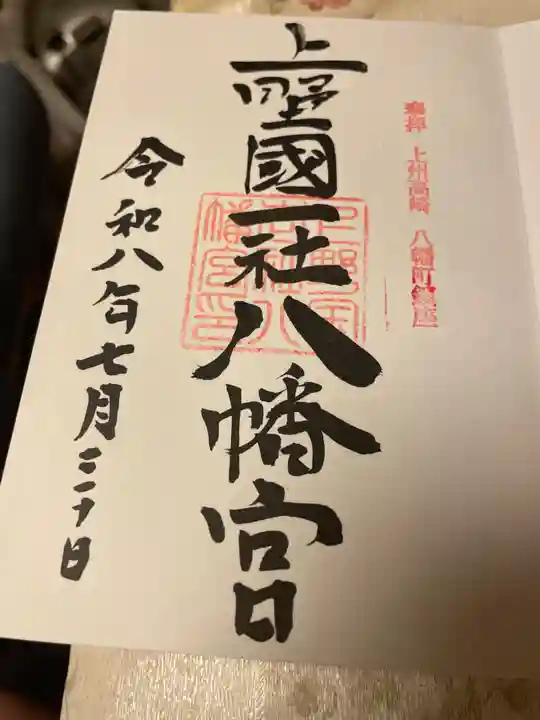 奉拝 上州高崎 八幡町鎮座
上野國一社八幡宮
令和八年七月三十日